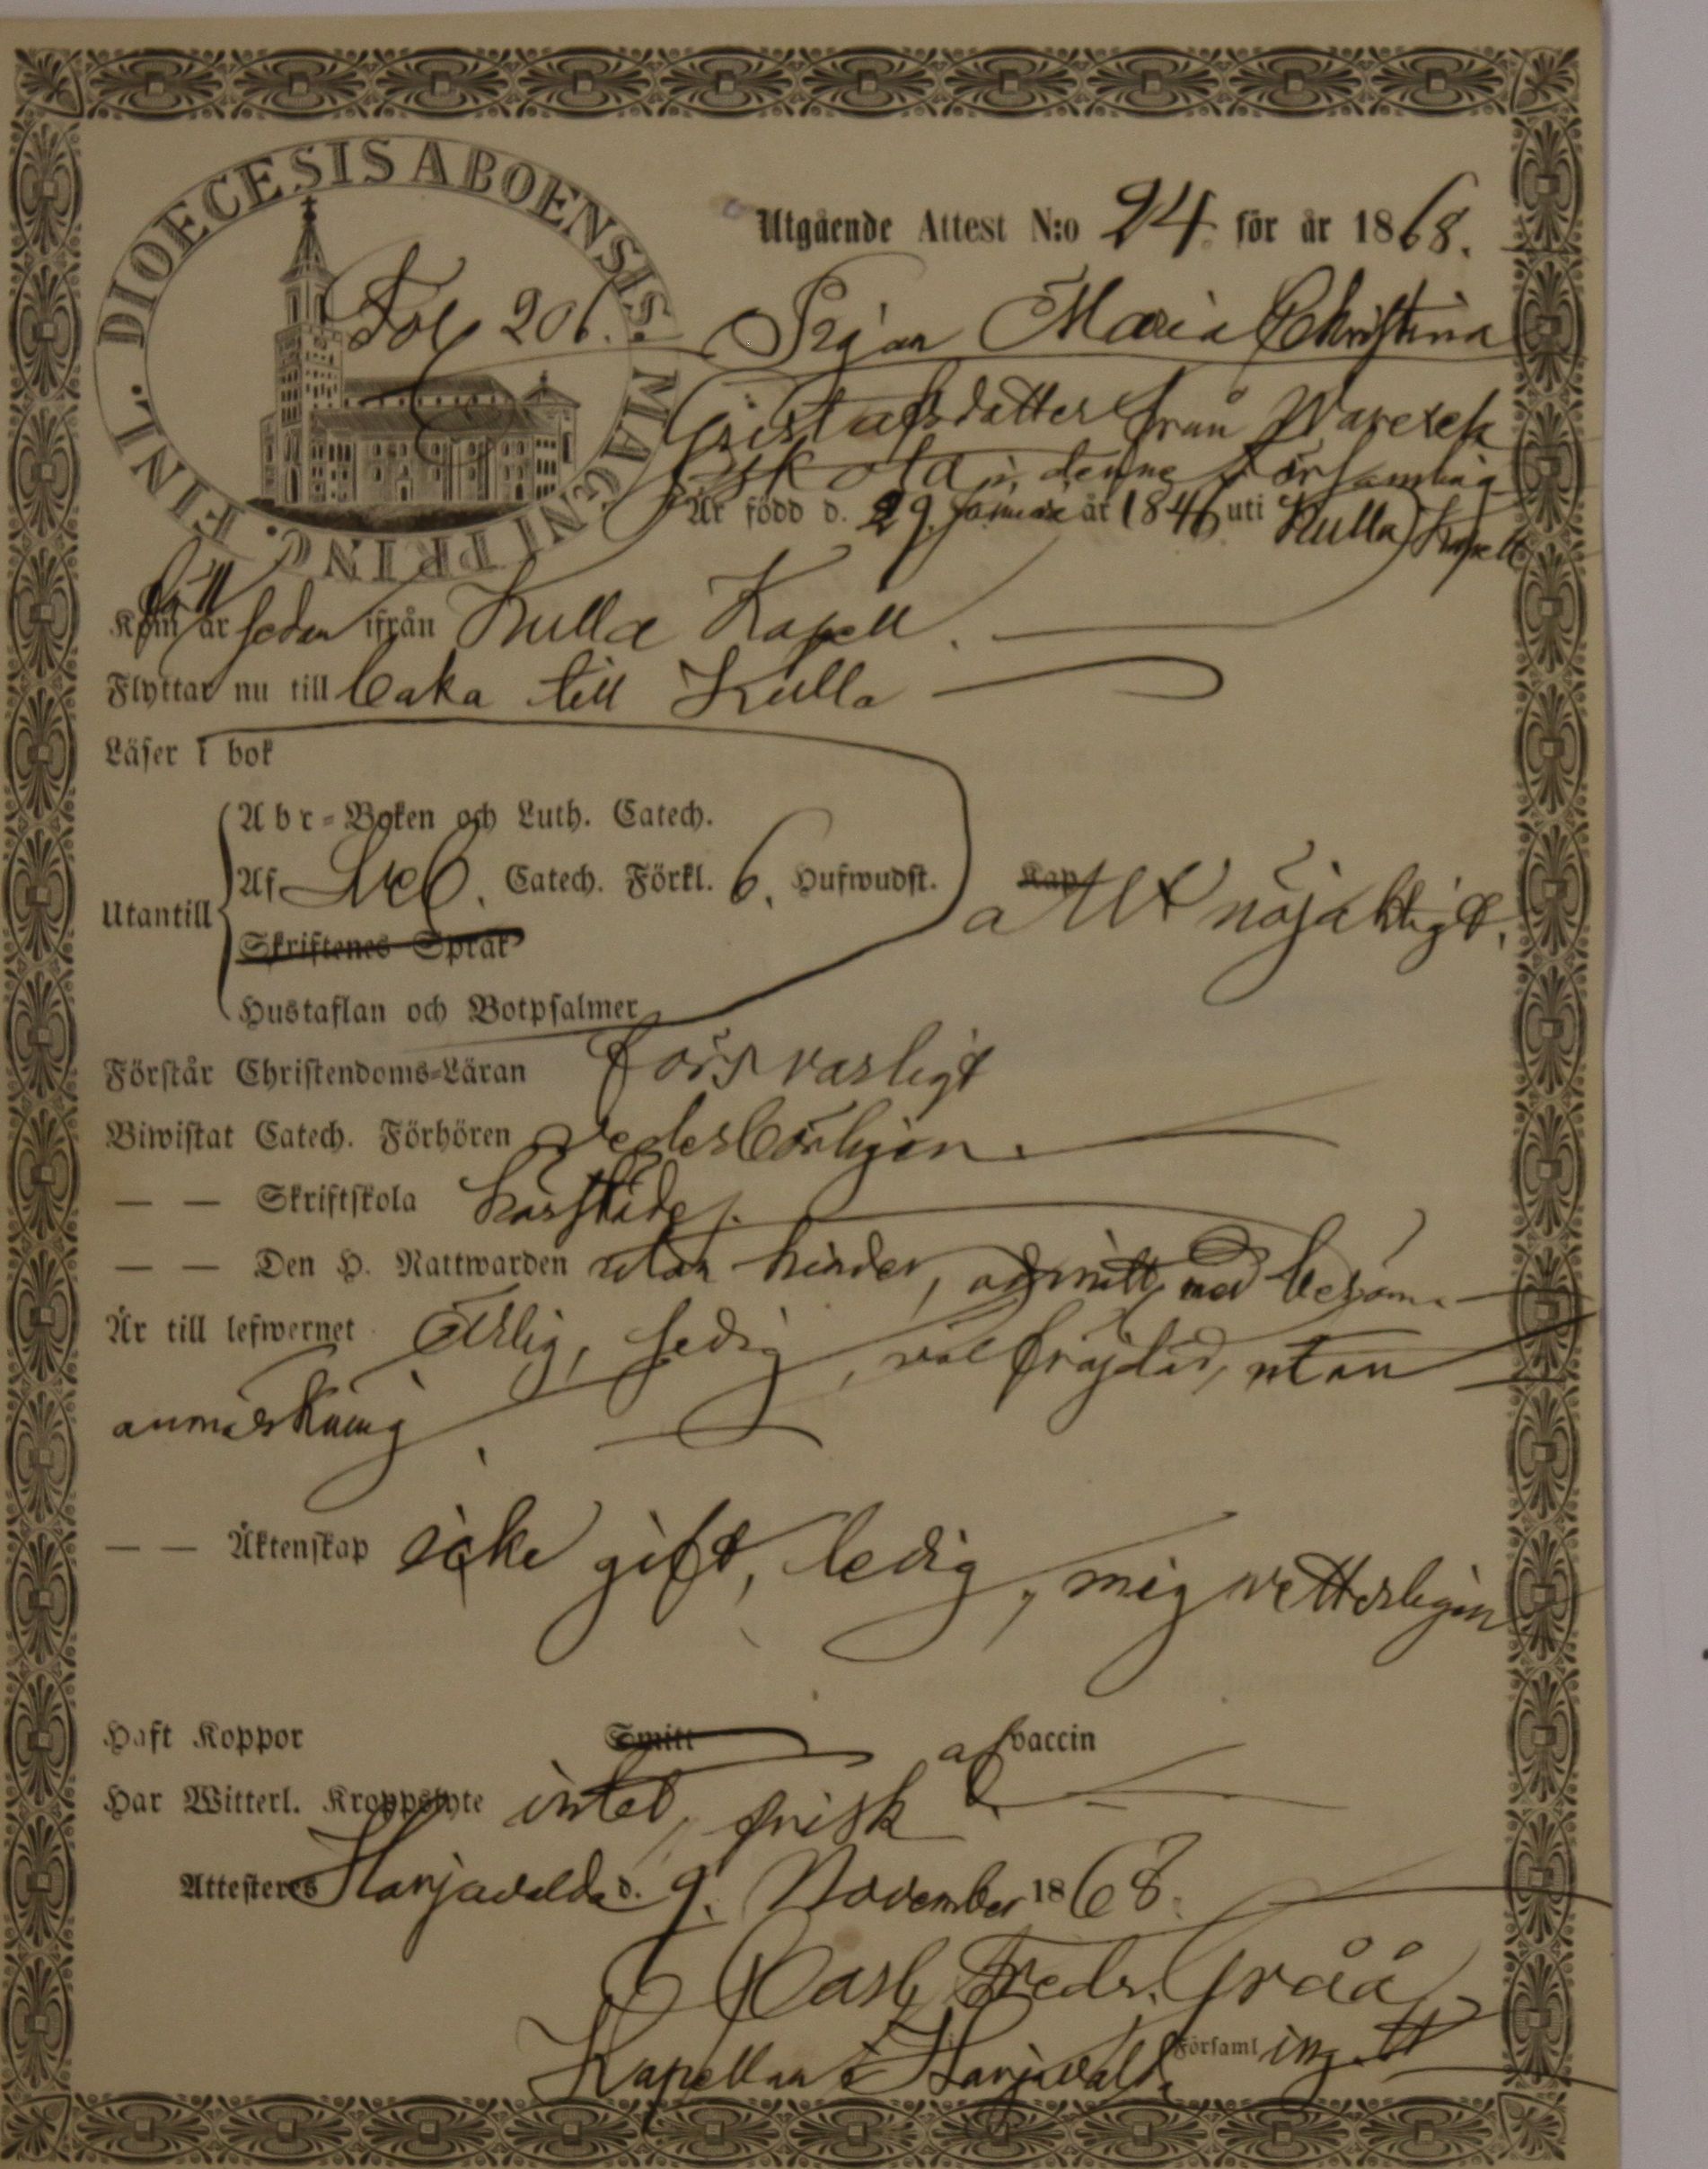 DIOECESIS ABOENSIS. MAGNI PRINC. FINL.
Utgående Attest N:o 24. för år 1868.
Fol 206. Pigan Maria Christina
Gustafsdatter från
i denne Församling
Är född d. 29. Januari år 1846 uti Kulla Kapell
Kom år sedan ifrån Kulla Kapell.
Flyttar nu till baka till Kulla
Läser i bok
Utantill
Abr-Boken och Luth. Catech.
Af Sveb. Catech. Förkl. 6. Hufwudst. Kap allt nöjaktigt.
Skriftenes Språk
Hustaflan och Botpsalmer
Förstår Christendoms-Läran försvarligt
Biwistat Catech. Förhören vederbörligen.
— — Skriftskola härstädes.
— — Den H. Nattwarden utan hinder, admitt. med beröm.
Är till lefwernet ärlig, sedig, väl fräjdad, utan
anmärkning.
— — Äktenskap icke gift, ledig, mig vetterligen
Haft Koppor Smitt af vaccin
Har Witterl. Kroppslyte intet, frisk
Attesteres Harjavalda d. 9. November 1868.
Carl Fredr. Gråå
Kapellan i Harjavalda Församling